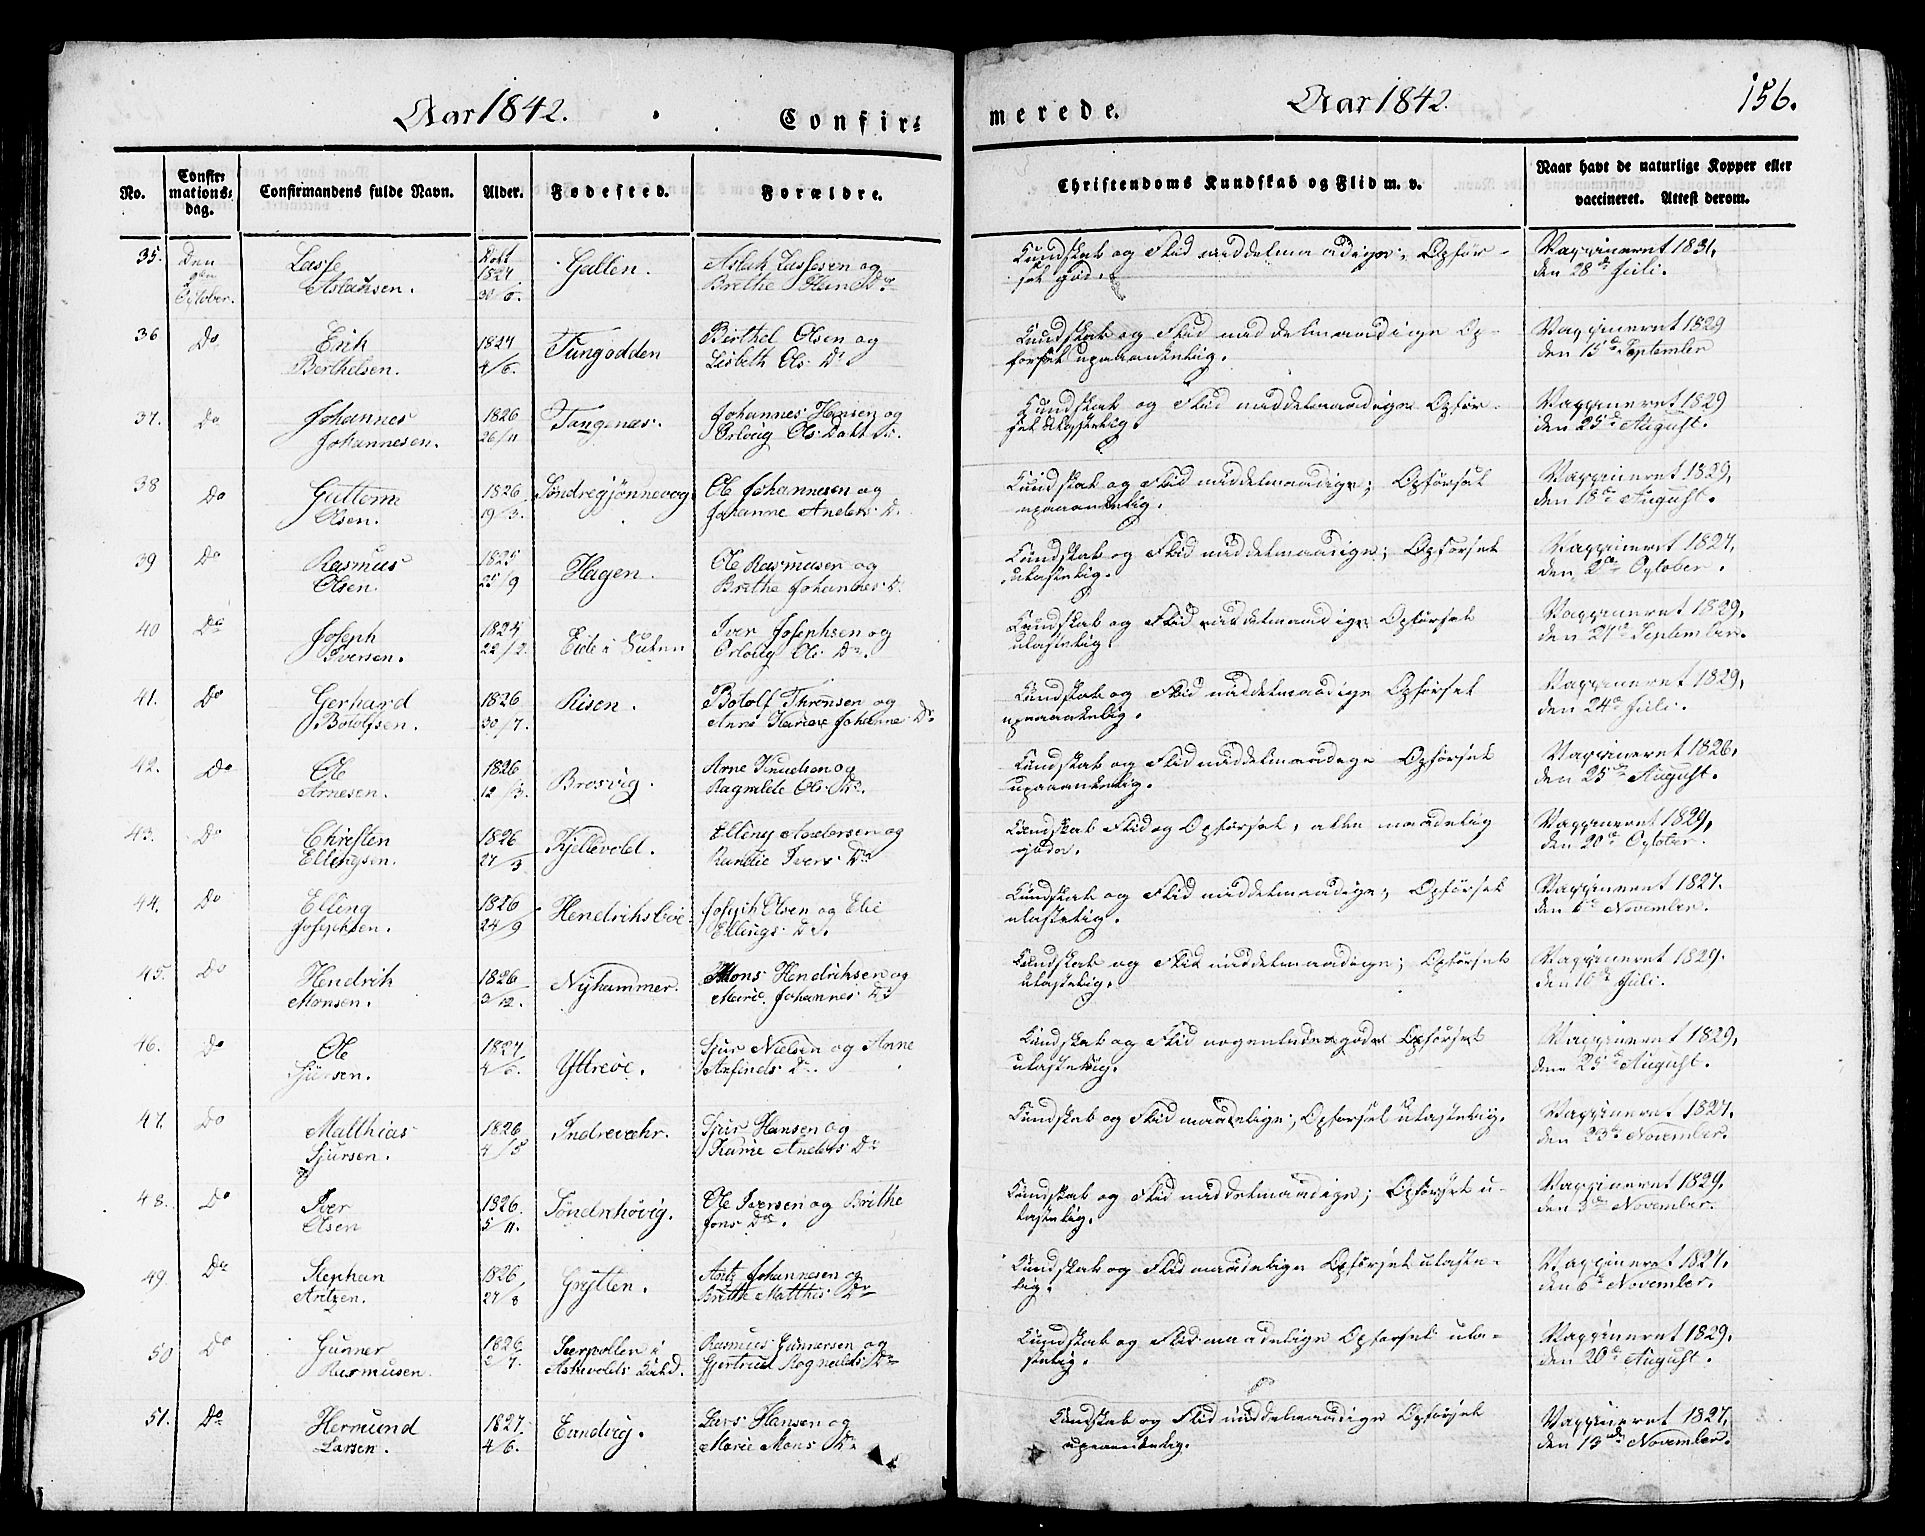 Aar 1842.
Confir⸗
merede.
Aar 1842.
156.
No.
Confir⸗
mations⸗
dag.
Confirmandens fulde Navn.
Alder.
Fødested.
Forældre.
Christendoms Kundskab og Flid m. v.
Naar havt de naturlige Kopper eller
vaccineret. Attest derom.
35. Den Lasse Gallen. Aslak Lassesen og Kundskab og Flid middelmaadige; Opfør- Vaccineret 1831,
October. Aslaksen. 1824 30/6. Brithe D den 28de Juli.
sel god.
36 Do Erik 1824 Tungodden Berthel Olsen og Kundskab og Flid middelmaadige Op- Vaccineret 1829
Berthelsen. 4/6. Lisbeth Ols: Dr. førsel upaaankelig. den 15de September
37. Do Johannes 1826 Tangenæs. Johannes Hansen og Kundskab og Flid middelmaadige Opfør- Vaccineret 1829
Johannesen. 26/11 Ols: Datter. sel ulastelig. den 25de August.
38 Do Guttorm 1826 Søndregjønnevog Ole Johannesen og Kundskab og Flid middelmaadige; Opførsel Vaccineret 1829,
Olsen. 19/3. Johanne Anders: D. upaaankelig. den 18de August.
39 Do Rasmus 1825 Hagen. Ole Rasmusen og Kundskab og Flid middelmaadige; Opførsel Vaccineret 1827,
Olsen. 25/9 Brithe Johannes: D. ulastelig. den 2de October.
40 Do Joseph Eide i Iver Josephsen og Kundskab og Flid middelmaadige Opførsel Vaccineret 1829,
Iversen. 22/2. Ols: Dr. ulastelig. den 21de September.
41. Do Gerhard 1826 Risen. Botolf Thronsen og Kundskab og Flid middelmaadige Opførsel Vaccineret 1829,
Botolfsen. 30/7. Anne Johanne Dr. upaaankelig. den 24de Juli.
42. Do Ole 1826 Brosvig. Arne Knudsen og Kundskab og Flid middelmaadige Opførsel Vaccineret 1826,
Arnesen. 12/3. Ragnilde Ols: Dr. upaaankelig. den 25de August.
43. Do Christen 1826 Kjellevold. Elling Andersen og Kundskab Flid og Opførsel, alle maadelig Vaccineret 1829,
Ellingsen. 27/3 Randie Ivers: Dr gode. den 20de October.
44. Do Elling 1826 Hendriksbøe Joseph Olsen og Elie Kundskab og Flid middelmaadige; Opførsel Vaccineret 1827.
Josephsen. 24/9 Ellings: Dr. ulastelig. den 6te November.
45. Do Hendrik 1826 Nyhammer. Mons Hendriksen og Kundskab og Flid middelmaadige; Opførsel Vaccineret 1829.
Monsen. 3/12. Marie Johannes: Dr ulastelig. den 10de Juli.
46. Do Ole 1827 Yttreøe. Sjur Nielsen og Anne Kundskab og Flid nogenlunde gode Opførsel Vaccineret 1829,
Sjursen. 4/6. Anfinds: D. ulastelig. den 25de August.
47. Do Matthias 1826 Indrevær. Sjur Hansen og Kundskab og Flid maadelige; Opførsel ulastelig. Vaccineret 1827.
Sjursen. 4/5 Karne Anders: Dr den 23de November.
48. Do Iver 1826. Søndrehøvig. Ole Iversen og Brithe Kundskab og Flid middelmaadige; Opførsel u- Vaccineret 1829,
Olsen 5/11. Jons Dr. lastelig. den 3de November.
49. Do Stephan 1826, Grytten. Antz Johannesen og Kundskab og Flid maadelige Opførsel ulaste- Vaccineret 1827.
Antzen. 27/8 Brithe Matthis: Dr lig. den 6te November.
50 Do Gunner 1826 Særpollen i Rasmus Gunnersen og Kundskab og Flid maadelige Opførsel ula- Vaccineret 1829.
Rasmusen. 2/7. Askevolds Gjertrud Rognalds: Dr stelig. den 20de August.
51. Do Hermund 1827. Lars Hansen og Kundskab og Flid middelmaadige Opførsel Vaccineret 1827,
Larsen. 4/6. Marie Mons: Dr upaaankelig. den 13de November.